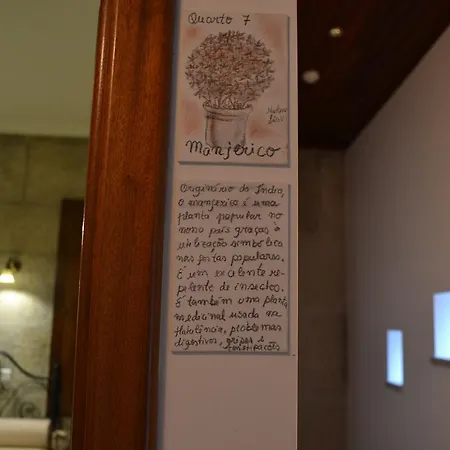 Quarto 7
Manjerico
Originário da Índia,
o manjerico é uma
planta popular no
nosso país graças à
utilização simbólica
nas festas populares.
É um excelente re-
pelente de insectos.
É também uma planta
medicinal usada na
flatulência, problemas
digestivos, gripes e
constipações